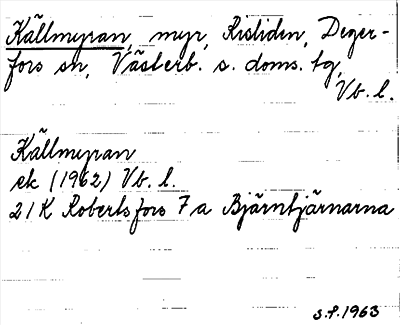 Källmyran, myr, Risliden, Deger-
fors sn, Västerb. s. doms. tg,
Vb. l.
Källmyran
ek (1962) Vb. l.
21K Robertsfors 7a Björntjärnarna
S.P. 1963